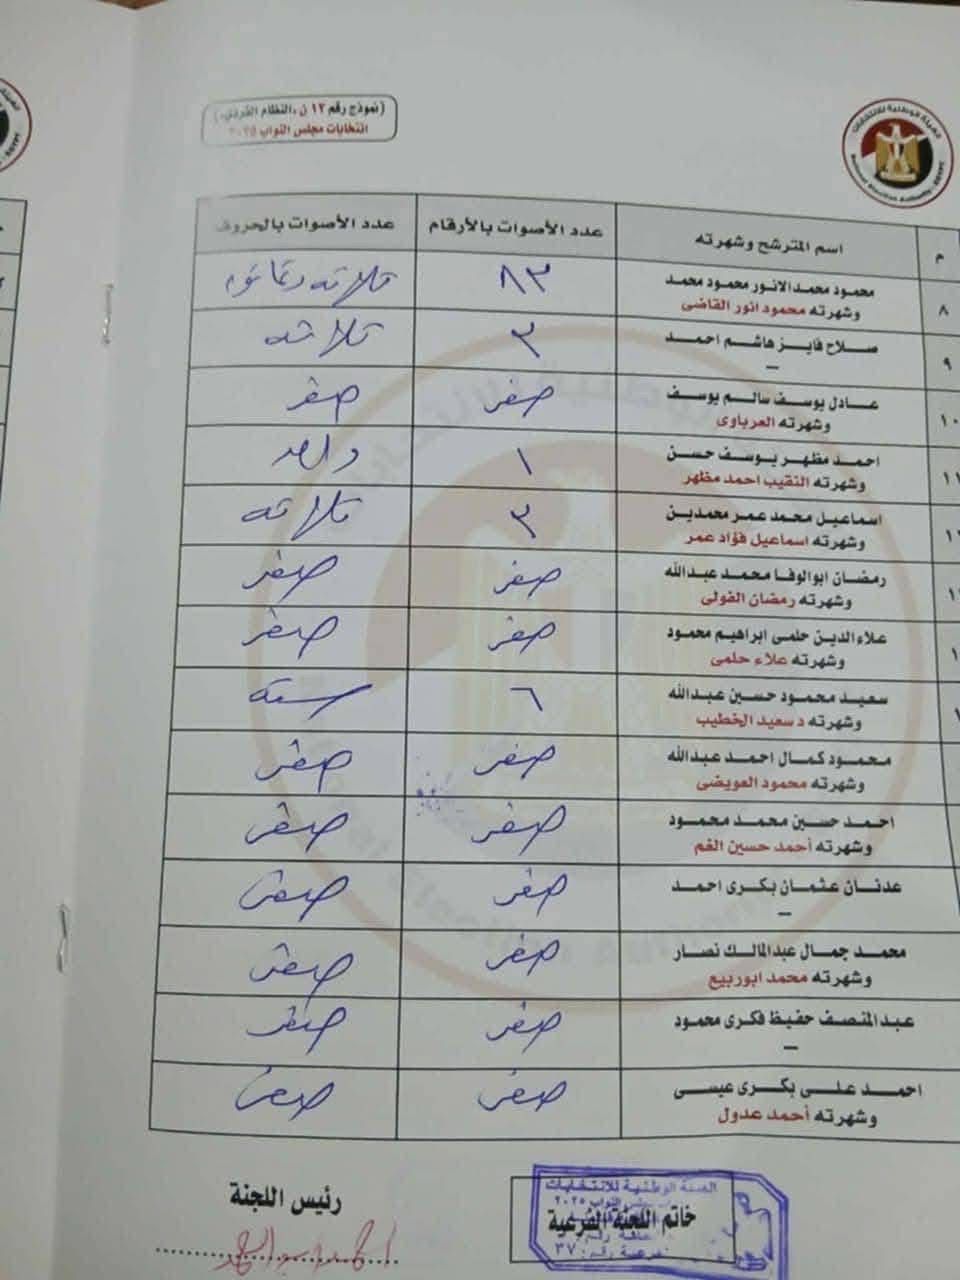 (نموذج رقم ١٣ ن.النظام الفردى،)
انتخابات مجلس النواب ٢٠٢٥
الهيئة الوطنية للانتخابات
National Election Authority - EGYPT
م
اسم المترشح وشهرته
عدد الأصوات بالأرقام
عدد الأصوات بالحروف
٨
محمود محمد الانور محمود محمد
وشهرته محمود انور القاضى
٨٣
ثلاثه وثمانون
٩
صلاح فايز هاشم احمد
–
٣
ثلاثه
١٠
عادل يوسف سالم يوسف
وشهرته العرباوى
صفر
صفر
احمد مظهر يوسف حسن
وشهرته النقيب احمد مظهر
١
واحد
اسماعيل محمد عمر محمدين
وشهرته اسماعيل فؤاد عمر
٣
ثلاثه
رمضان ابوالوفا محمد عبدالله
وشهرته رمضان الفولى
صفر
صفر
علاء الدين حلمى ابراهيم محمود
وشهرته علاء حلمى
صفر
صفر
سعيد محمود حسين عبدالله
وشهرته د سعيد الخطيب
٦
سته
محمود كمال احمد عبدالله
وشهرته محمود العويضى
صفر
صفر
احمد حسين محمد محمود
وشهرته أحمد حسين الغم
صفر
صفر
عدنان عثمان بكرى احمد
–
صفر
صفر
محمد جمال عبدالمالك نصار
وشهرته محمد ابوربيع
صفر
صفر
عبدالمنصف حفيظ فكرى محمود
–
صفر
صفر
احمد على بكرى عيسى
وشهرته أحمد عدول
صفر
صفر
خاتم اللجنة الفرعية
الهيئة الوطنية للانتخابات
مجلس النواب ٢٠٢٥
رقم: ٣٧
رئيس اللجنة